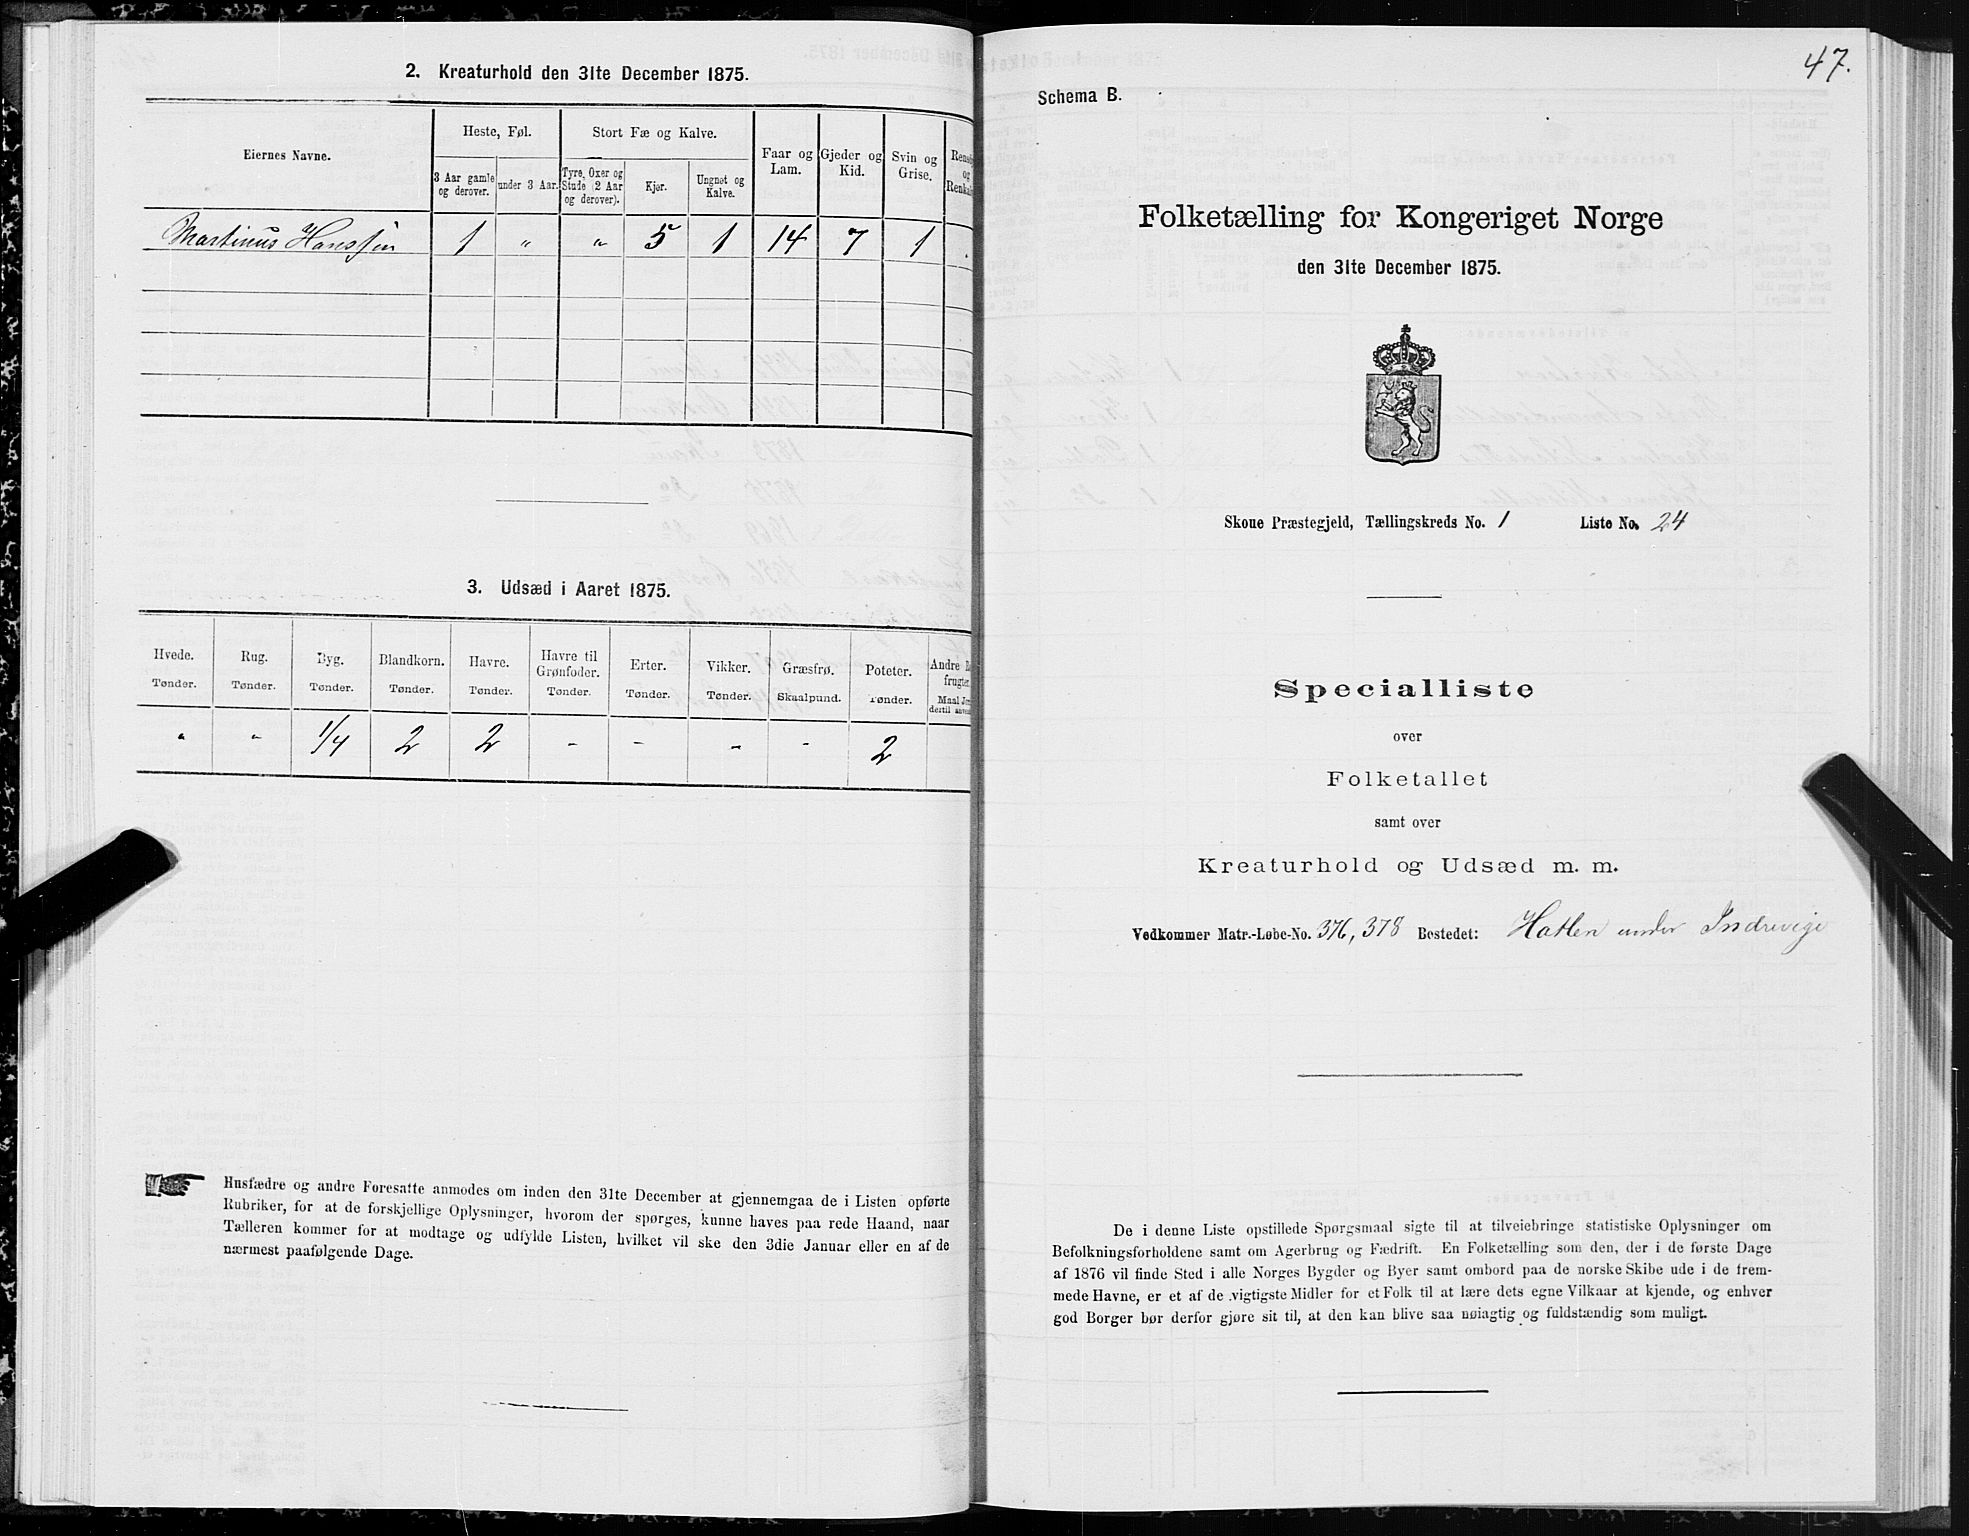 2. Kreaturhold den 31te December 1875.
Eiernes Navne.
Heste, Føl.
Stort Fæ og Kalve.
Faar og Lam.
Gjeder og Kid.
Svin og Grise.
og
3 Aar gamle og derover.
under 3 Aar.
Tyre, Oxer og Stude (2 Aar og derover).
Kjør.
Ungnøt og Kalve.
Martinus Hanssen 1 " " 5 1 14 7 1
3. Udsæd i Aaret 1875.
Hvede. Rug. Byg. Blandkorn. Havre. Havre til Grønfoder. Erter. Vikker. Græsfrø. Poteter. Andre
Tønder. Tønder. Tønder. Tønder. Tønder. Tønder. Tønder. Tønder. Skaalpund. Tønder. Maal
" " 1/4 2 2 - - - - 2
Husfædre og andre Foresatte anmodes om inden den 31te December at gjennemgaa de i Listen opførte
Rubriker, for at de forskjellige Oplysninger, hvorom der spørges, kunne haves paa rede Haand, naar
Tælleren kommer for at modtage og udfylde Listen, hvilket vil ske den 3die Januar eller en af de
nærmest paafølgende Dage.
47.
Schema B.
Folketælling for Kongeriget Norge
den 31te December 1875.
Skoue Præstegjeld, Tællingskreds No. 1 Liste No. 24
Specialliste
over
Folketallet
samt over
Kreaturhold og Udsæd m. m.
Vedkommer Matr.-Løbe-No. 376, 378 Bostedet: Hatlen under Indrevige
De i denne Liste opstillede Spørgsmaal sigte til at tilveiebringe statistiske Oplysninger om
Befolkningsforholdene samt om Agerbrug og Fædrift. En Folketælling som den, der i de første Dage
af 1876 vil finde Sted i alle Norges Bygder og Byer samt ombord paa de norske Skibe ude i de frem-
mede Havne, er et af de vigtigste Midler for et Folk til at lære dets egne Vilkaar at kjende, og enhver
god Borger bør derfor gjøre sit til, at den kan blive saa nøiagtig og fuldstændig som muligt.